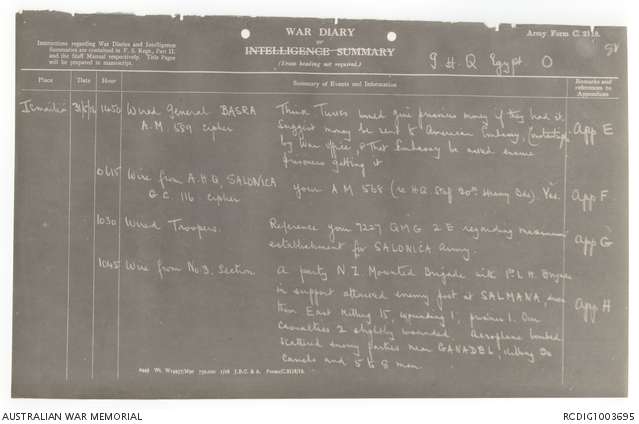 WAR DIARY
OR
INTELLIGENCE SUMMARY
(Erase heading not required.)
Army Form C. 2118.
Instructions regarding War Diaries and Intelligence
Summaries are contained in F. S. Regs., Part II.
and the Staff Manual respectively. Title Pages
will be prepared in manuscript.
G H Q Egypt O
Place Date Hour Summary of Events and Information Remarks and references to Appendices
Ismailia 31/5/16 Wired General BASRA
A.M. 589 cipher
Think Turks would give prisoners money if they had it.
Suggest money be sent to American Embassy,
by War Office, & that Embassy be asked ensure
prisoners getting it
App E
0615 Wire from A.H.Q. SALONICA
G.C. 116 cipher
your A M 568 ( HQ 20th Heavy ) Yes.
App F
1030 Wired Troopers.
Reference your 7227 QMG 2 E regarding maximum
establishment for SALONICA Army.
App G
1045 Wire from No 3. Section
A party N Z Mounted Brigade with 1st L H. Brigade
in support attacked enemy post at SALMANA,
them East killing 15, wounding 1, prisoners 1. Our
casualties 2 slightly wounded. Aeroplane bombed
scattered enemy parties near GANADEL, killing 20
camels and 5 to 8 men.
App H
AUSTRALIAN WAR MEMORIAL
RCDIG1003695